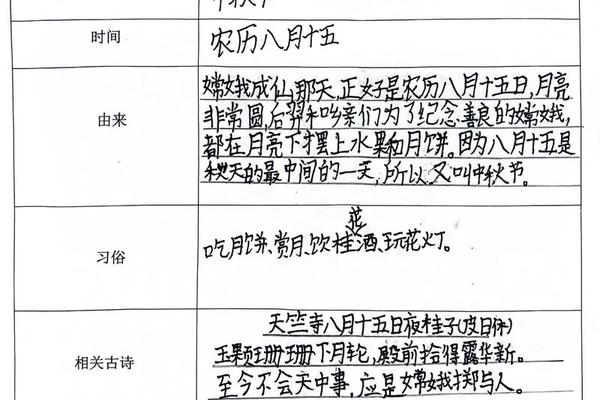 时间
农历八月十五
由来
嫦娥成仙那天,正好是农历八月十五日,月亮
非常圆,后羿和乡亲们为了纪念善良的嫦娥,
都在月亮下摆上水果和月饼。因为八月十五是
秋天的最中间的一天,所以又叫中秋节。
习俗
吃月饼、赏月、饮桂花酒、玩花灯。
相关古诗
天竺寺八月十五日夜桂子(皮日休)
玉颗珊珊下月轮,殿前拾得露华新。
至今不会天中事,应是嫦娥掷与人。